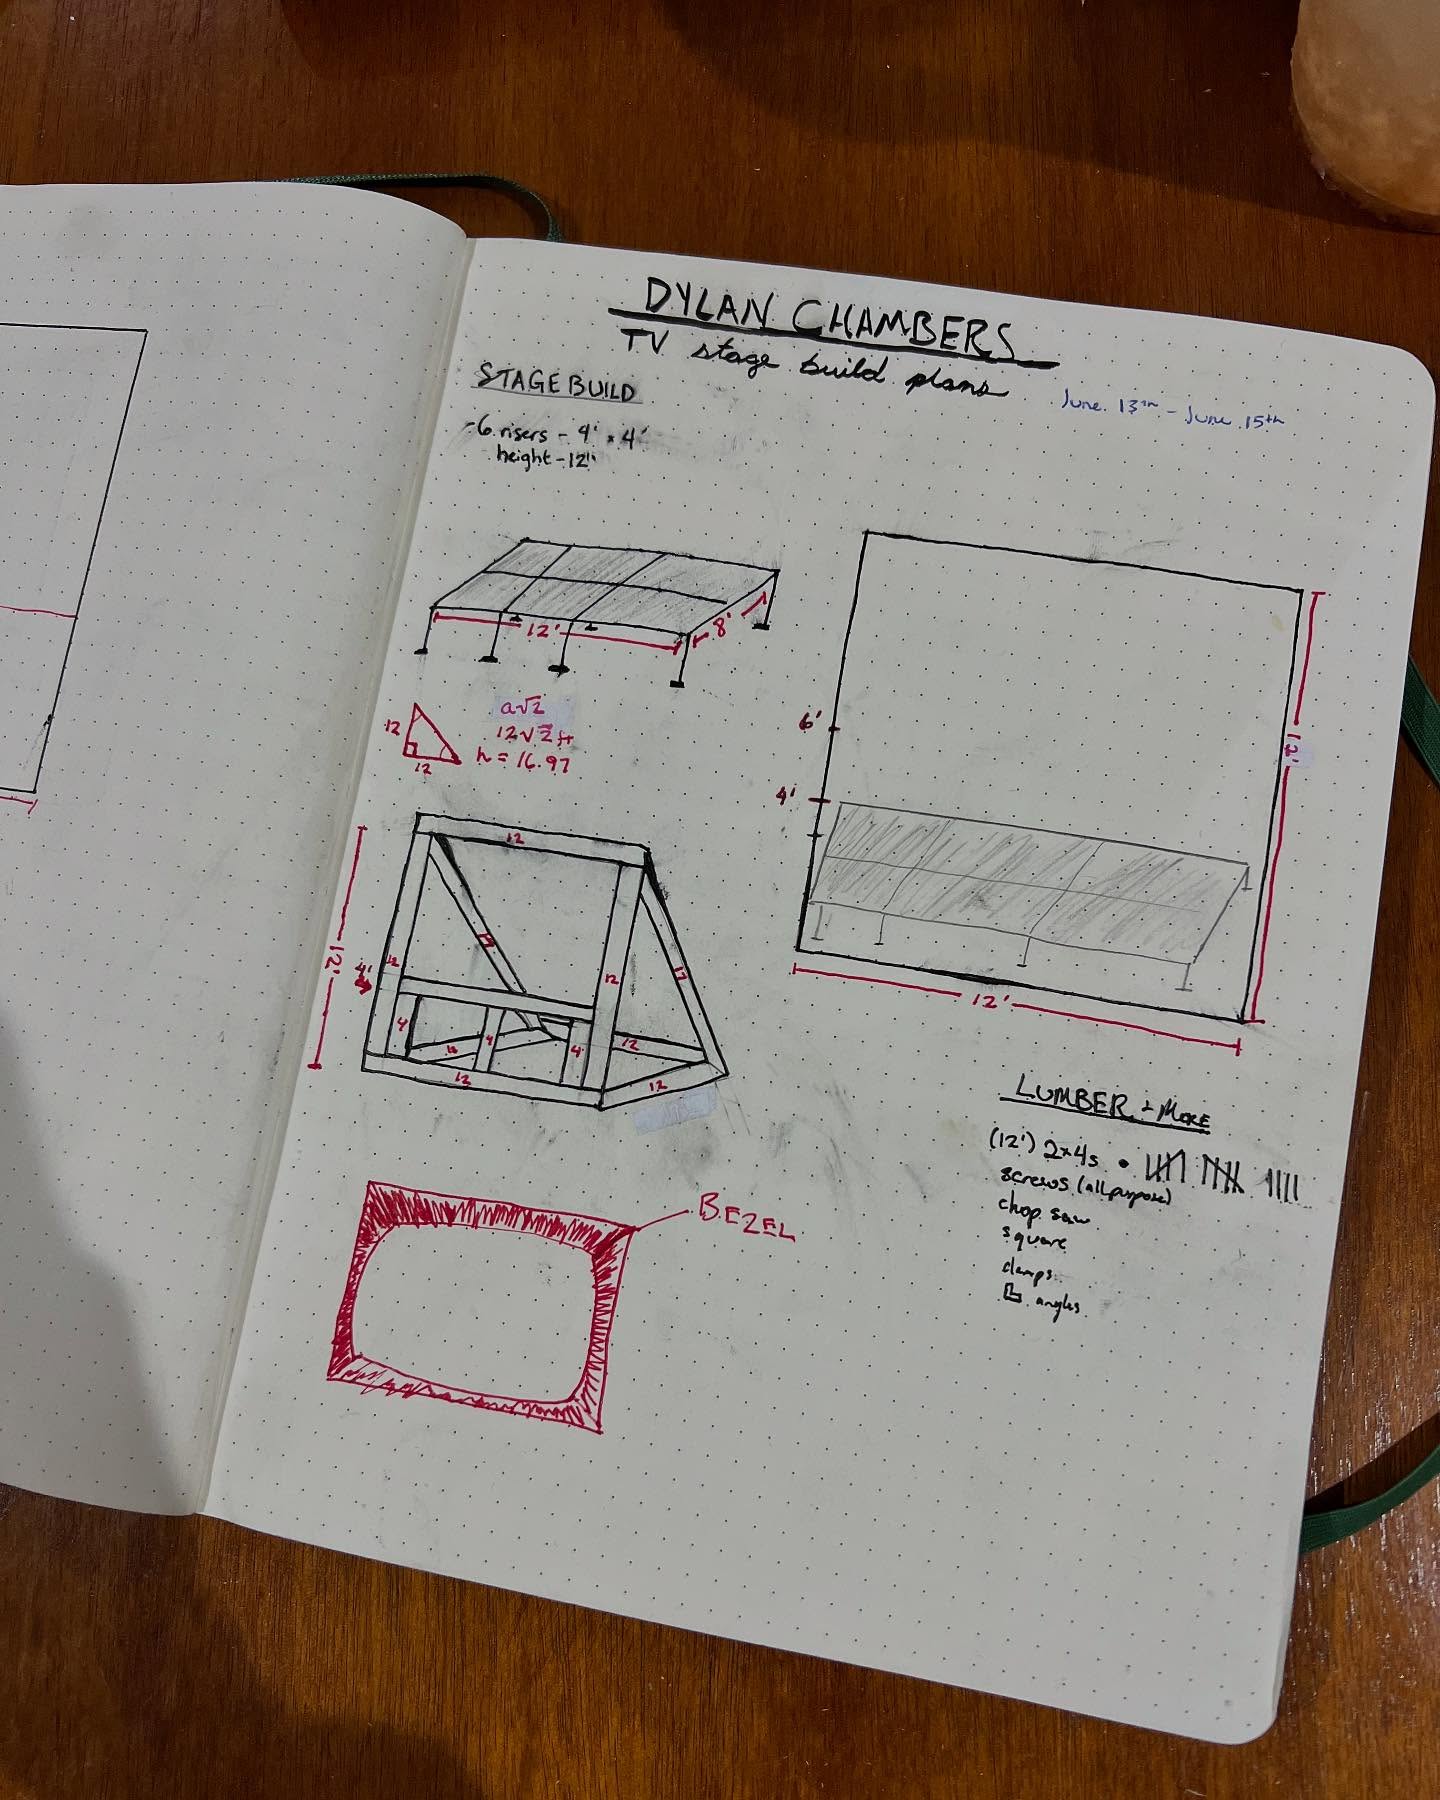 DYLAN CHAMBERS
TV stage build plans
June 13th - June 15th
STAGE BUILD
- 6 risers - 4' x 4'
height - 12"
12'
8'
12
12
a√2
12√2 ft
h = 16.97
6'
4'
12'
12'
12
12'
4'
12
17
12
17
4
4
4
12
12
12
12
BEZEL
LUMBER + MORE
(12') 2x4s •
screws (all purpose)
chop saw
square
clamps
angles